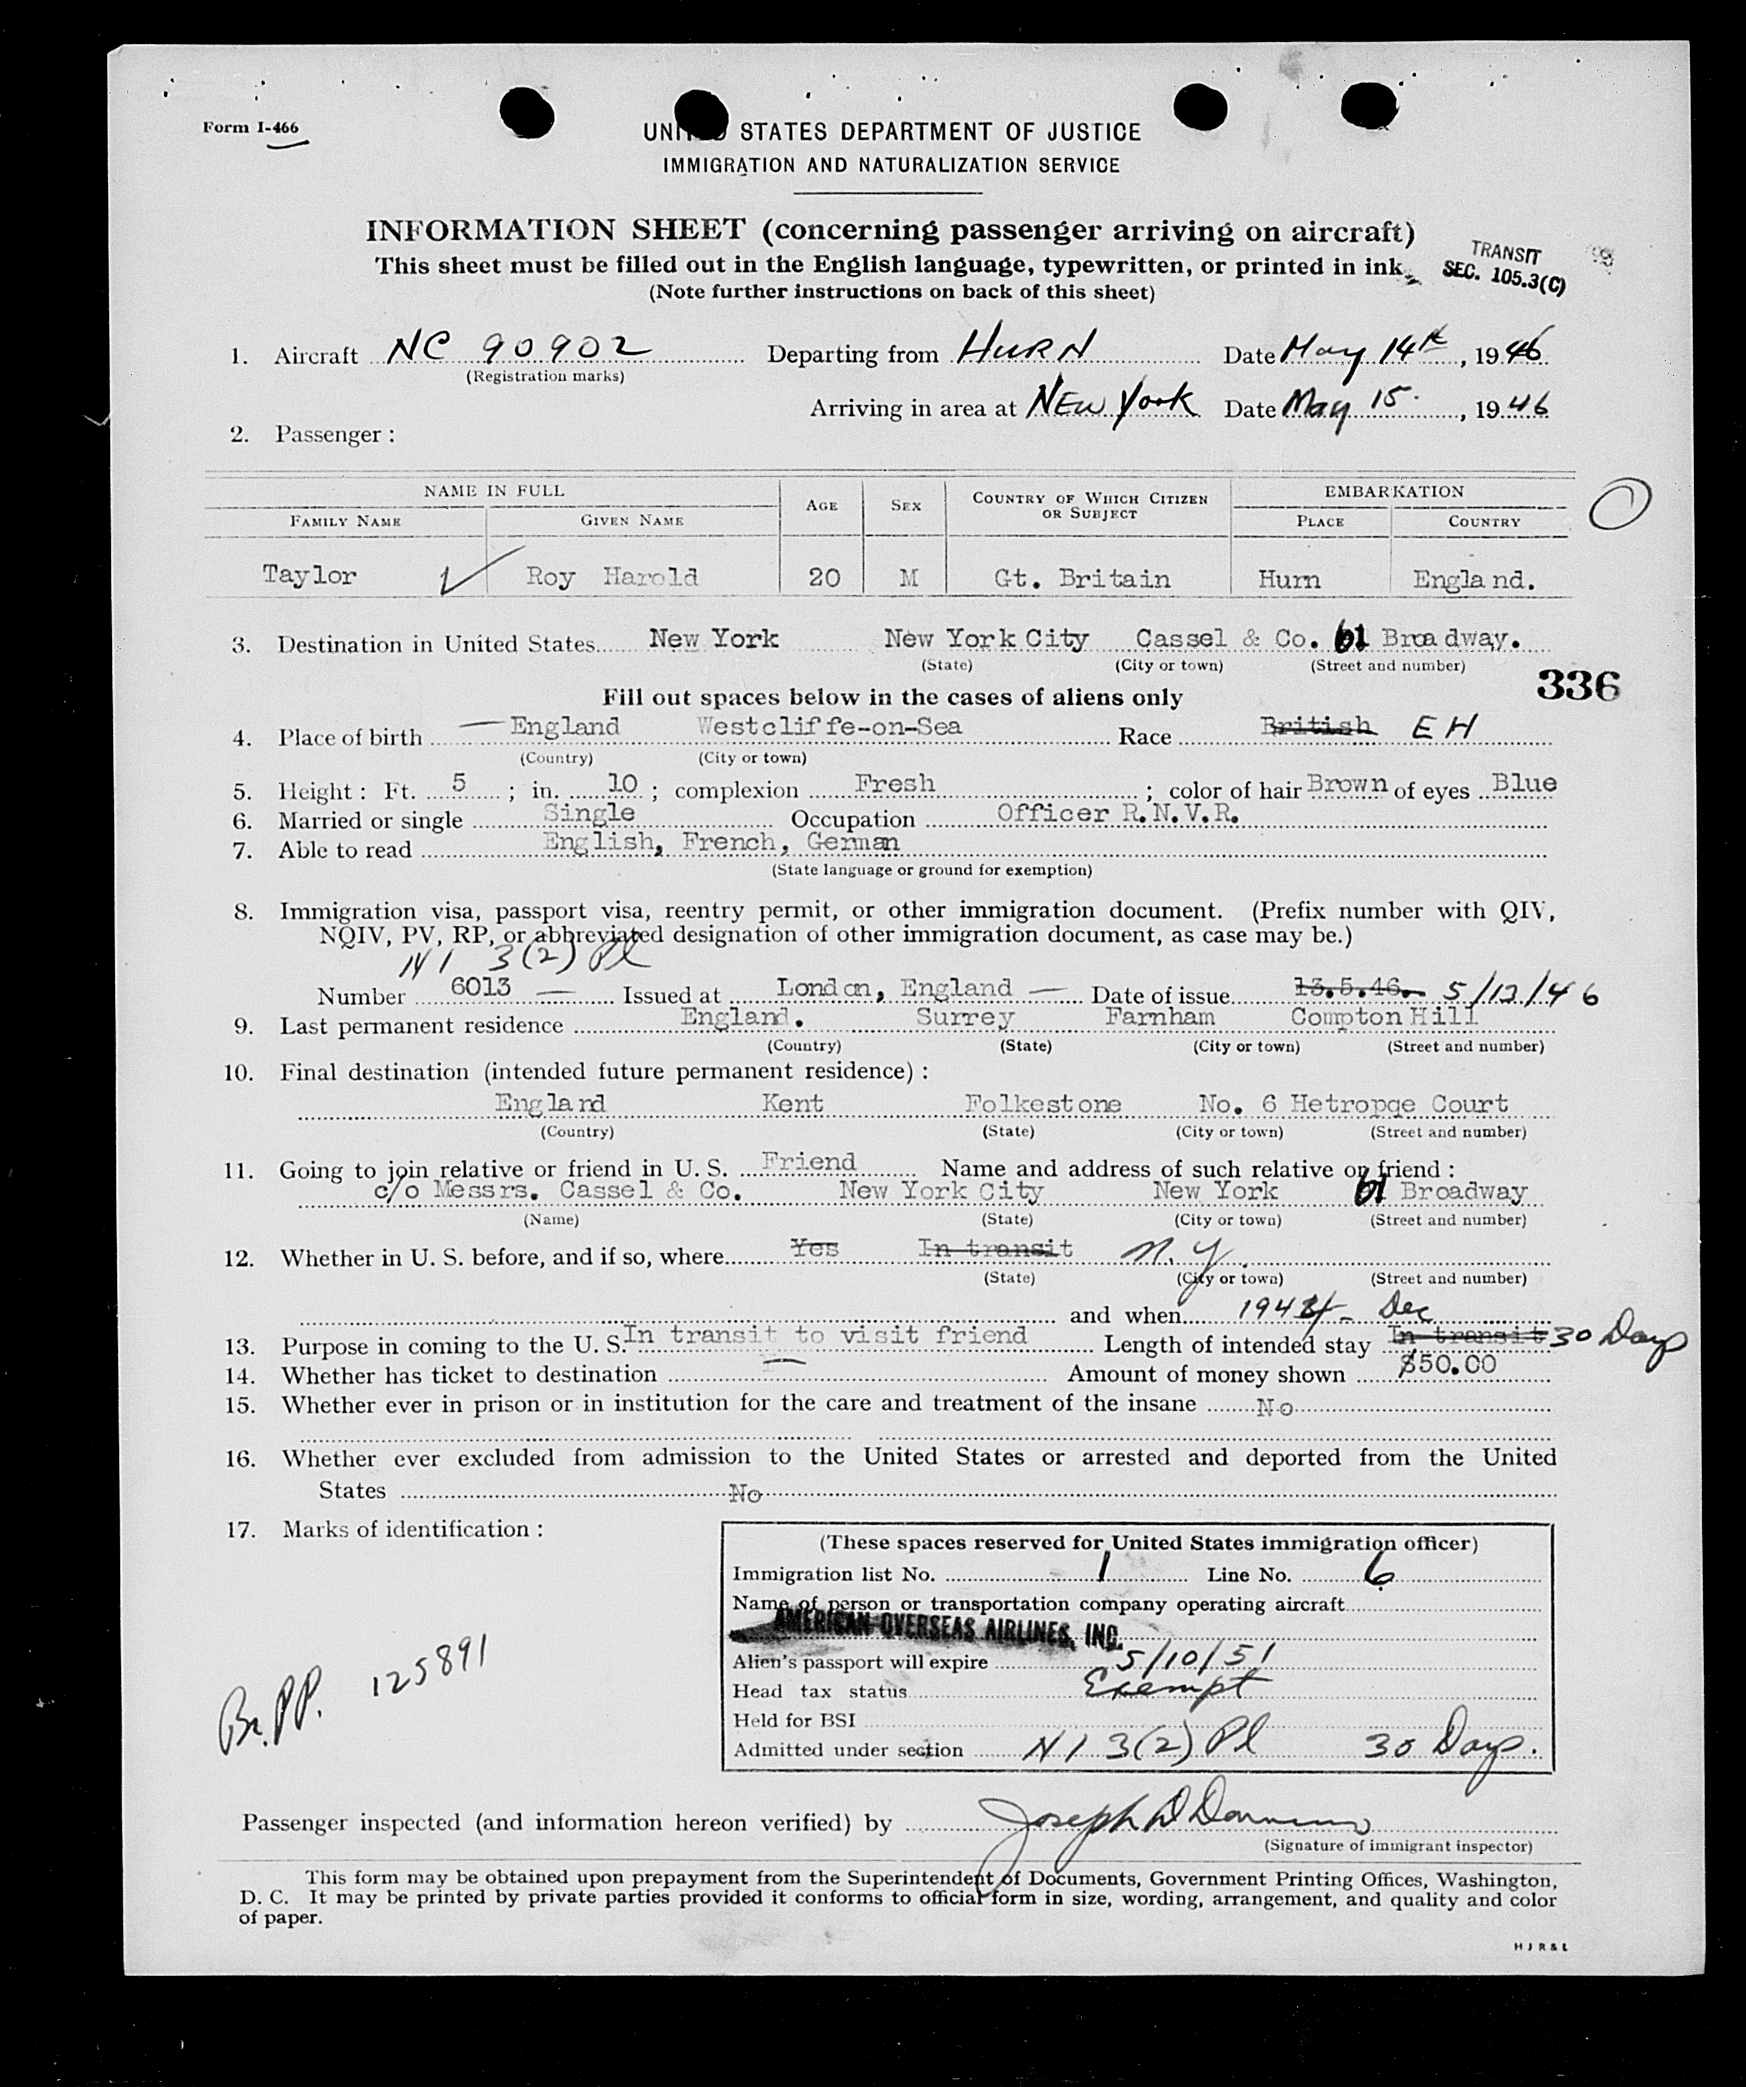 Form I-466
UNITED STATES DEPARTMENT OF JUSTICE
IMMIGRATION AND NATURALIZATION SERVICE
INFORMATION SHEET (concerning passenger arriving on aircraft)
This sheet must be filled out in the English language, typewritten, or printed in ink
(Note further instructions on back of this sheet)
TRANSIT
SEC. 105.3(C)
1. Aircraft NC 90902 Departing from HURN Date May 14th, 1946
(Registration marks)
Arriving in area at NEW York Date May 15, 1946
2. Passenger:
NAME IN FULL AGE SEX COUNTRY OF WHICH CITIZEN OR SUBJECT EMBARKATION
FAMILY NAME GIVEN NAME PLACE COUNTRY
Taylor Roy Harold 20 M Gt. Britain Hurn England.
3. Destination in United States New York New York City Cassel & Co. 61 Broadway.
(State) (City or town) (Street and number)
336
Fill out spaces below in the cases of aliens only
4. Place of birth England Westcliffe-on-Sea Race British E H
(Country) (City or town)
5. Height: Ft. 5; in. 10; complexion Fresh; color of hair Brown of eyes Blue
6. Married or single Single Occupation Officer R.N.V.R.
7. Able to read English, French, German
(State language or ground for exemption)
8. Immigration visa, passport visa, reentry permit, or other immigration document. (Prefix number with QIV,
NQIV, PV, RP, or abbreviated designation of other immigration document, as case may be.)
N I 3(2) Pl
Number 6013 Issued at London, England Date of issue 13.5.46. 5/13/46
9. Last permanent residence England. Surrey Farnham Compton Hill
(Country) (State) (City or town) (Street and number)
10. Final destination (intended future permanent residence):
England Kent Folkestone No. 6 Hetropqe Court
(Country) (State) (City or town) (Street and number)
11. Going to join relative or friend in U. S. Friend Name and address of such relative or friend:
c/o Messrs. Cassel & Co. New York City New York 61 Broadway
(Name) (State) (City or town) (Street and number)
12. Whether in U. S. before, and if so, where Yes In transit N. Y.
(State) (City or town) (Street and number)
and when 1944 - Dec
13. Purpose in coming to the U. S. In transit to visit friend Length of intended stay In transit 30 Days
14. Whether has ticket to destination — Amount of money shown $50.00
15. Whether ever in prison or in institution for the care and treatment of the insane No
16. Whether ever excluded from admission to the United States or arrested and deported from the United
States No
17. Marks of identification:
Br. PP. 125891
(These spaces reserved for United States immigration officer)
Immigration list No. 1 Line No. 6
Name of person or transportation company operating aircraft
AMERICAN OVERSEAS AIRLINES, INC.
Alien's passport will expire 5/10/51
Head tax status Exempt
Held for BSI
Admitted under section N I 3(2) Pl 30 Days.
Passenger inspected (and information hereon verified) by Joseph D
(Signature of immigrant inspector)
This form may be obtained upon prepayment from the Superintendent of Documents, Government Printing Offices, Washington,
D. C. It may be printed by private parties provided it conforms to official form in size, wording, arrangement, and quality and color
of paper.
H J R & L